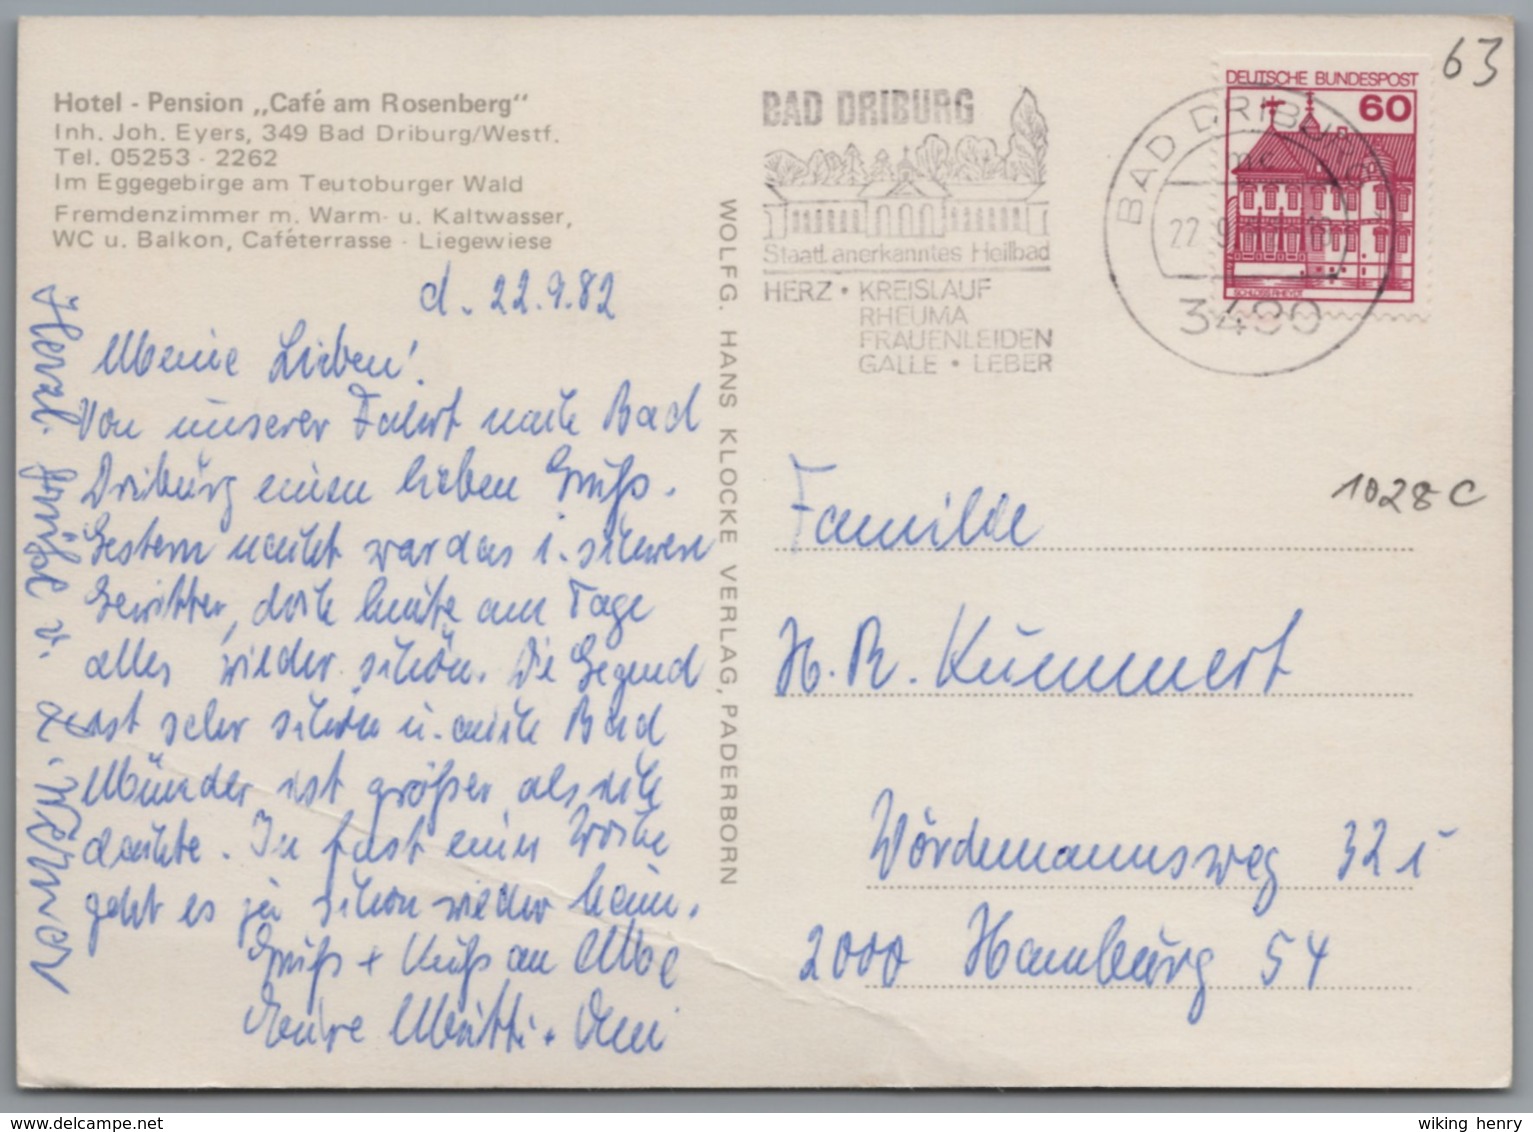 Hotel - Pension „Café am Rosenberg"
Inh. Joh. Eyers, 349 Bad Driburg/Westf.
Tel. 05253 · 2262
Im Eggegebirge am Teutoburger Wald
Fremdenzimmer m. Warm- u. Kaltwasser,
WC u. Balkon, Caféterrasse · Liegewiese
d. 22.9.82
Meine Lieben!
Von unserer Fahrt nach Bad
Driburg einen lieben Gruß.
Gestern nacht war das 1. schwere
Gewitter, doch heute am Tage
alles wieder schön. Die Gegend
ist sehr schön u. auch Bad
Münder ist größer als ich
dachte. In fast einer Woche
geht es ja schon wieder heim.
Gruß + Kuß an
Eure Mutti + Omi
Herzl. Grüße v.
WOLFG. HANS KLOCKE VERLAG, PADERBORN
BAD DRIBURG
Staatl. anerkanntes Heilbad
HERZ • KREISLAUF
RHEUMA
FRAUENLEIDEN
GALLE • LEBER
BAD DRIBURG
22.9.
3490
DEUTSCHE BUNDESPOST
60
SCHLOSS RHEYDT
63
1028 C
Familie
H. R. Kummert
Wördemannsweg 32 i
2000 Hamburg 54
wiking henry